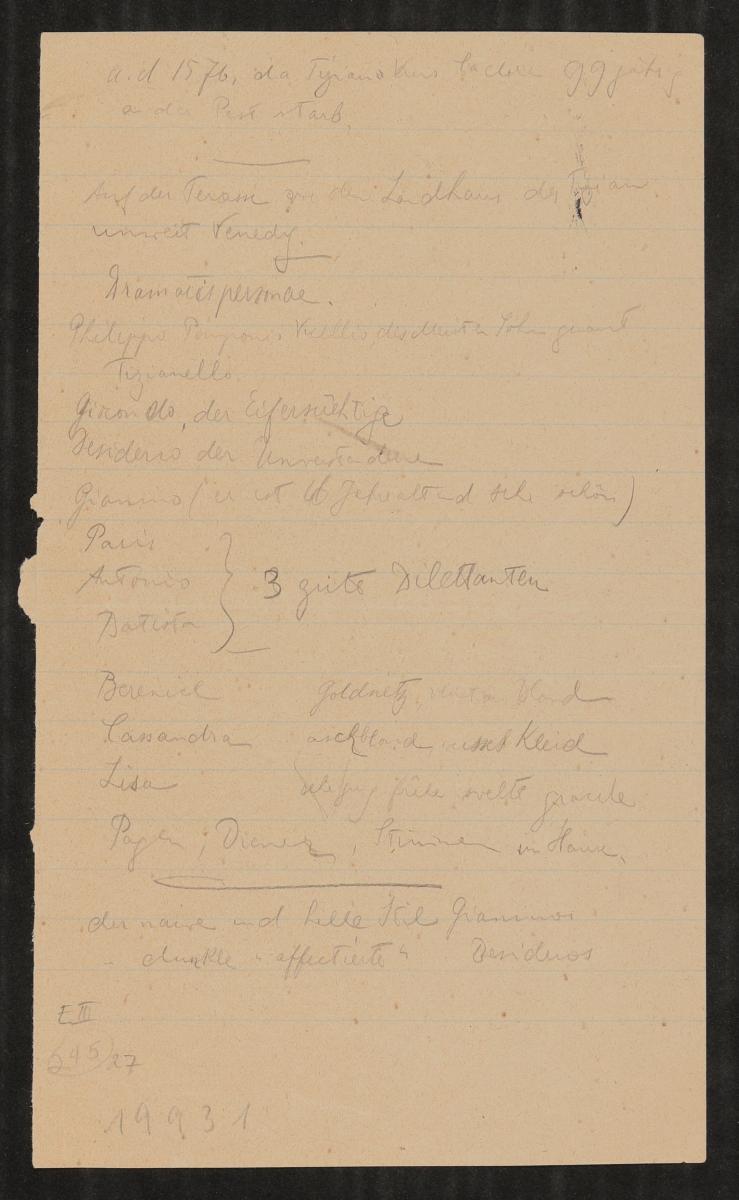 a. d 1576, da Tiziano Vecellio 99 jährig
an der Pest starb.
Auf der Terasse von dem Landhaus des Tizian
unweit Venedig.
Dramatis personae.
Philippo Pomponio Vecellio des Meisters Sohn genannt
Tizianello.
Giocondo, der Eifersüchtige
Desiderio der Unverstandene
Gianino (er ist 16 Jahre alt und sehr schön)
Paris
Antonio
Batista
3 gute Dilettanten
Berenice Goldnetz, blond
Cassandra aschblond, Kleid
Lisa svelte gracile
Pagen, Diener, Stimmen im Hause.
der naive und helle Stil Gianinos
" dunkle "affectierte" Desiderios
E III
245 27
19931